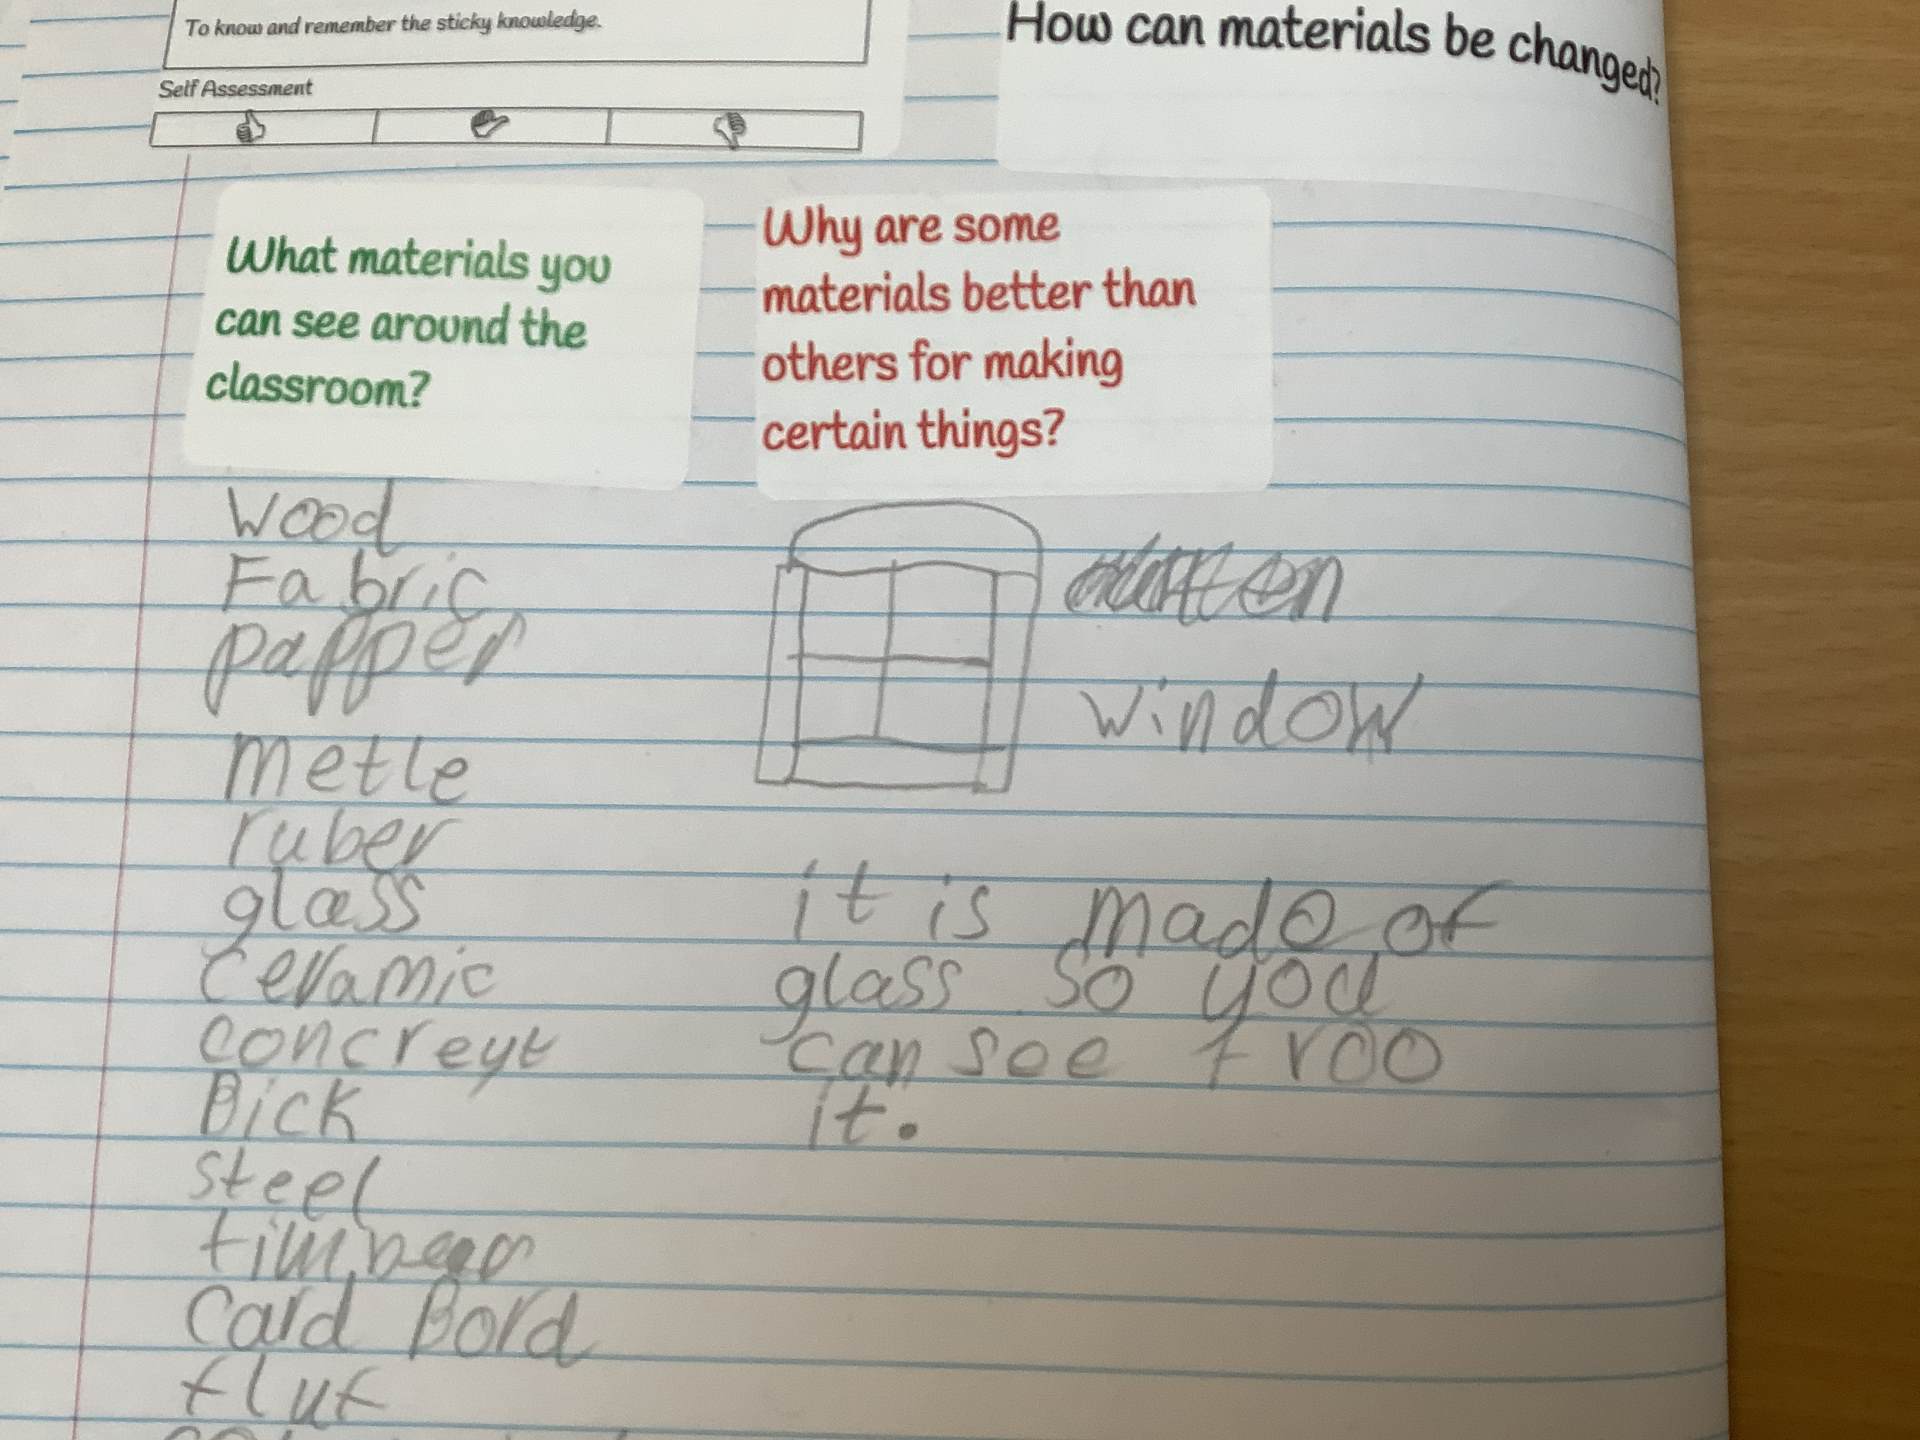 To know and remember the sticky knowledge.
Self Assessment
How can materials be changed?
What materials you
can see around the
classroom?
Wood
Fabric
papper
metle
ruber
glass
ceramic
concreyt
Bick
steel
timber
Card Bord
fluf
Why are some
materials better than
others for making
certain things?
window
it is made of
glass so you
can see froo
it.